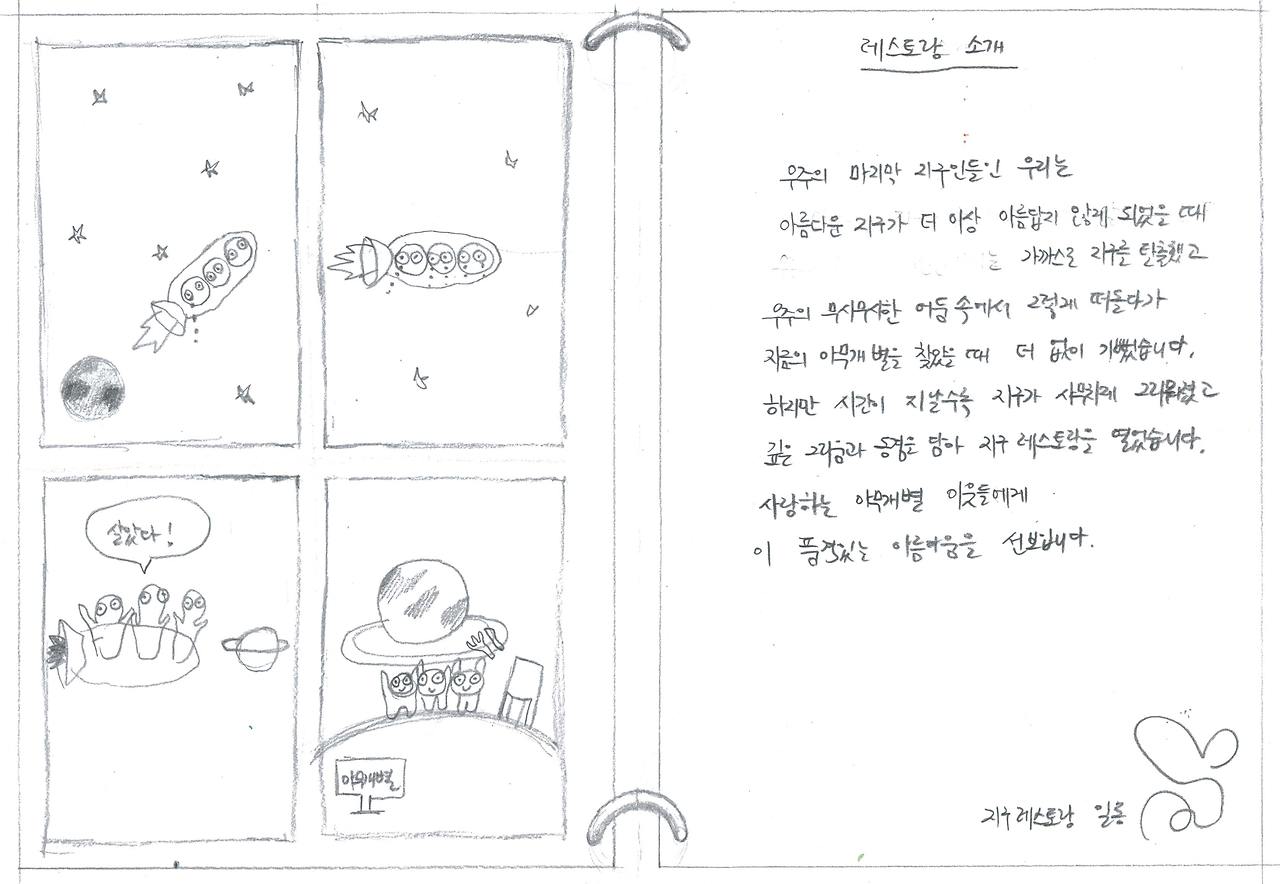 살았다!
아무개별
레스토랑 소개
우주의 마지막 지구인들인 우리는
아름다운 지구가 더 이상 아름답지 않게 되었을 때
는 가까스로 지구를 탈출했고
우주의 무시무시한 어둠 속에서 그렇게 떠돌다가
지금의 아무개 별을 찾았을 때 더 없이 기뻤습니다.
하지만 시간이 지날수록 지구가 사무치게 그리워졌고
깊은 그리움과 동경을 담아 지구 레스토랑을 열었습니다.
사랑하는 아무개별 이웃들에게
이 품격있는 아름다움을 선보입니다.
지구레스토랑 일동